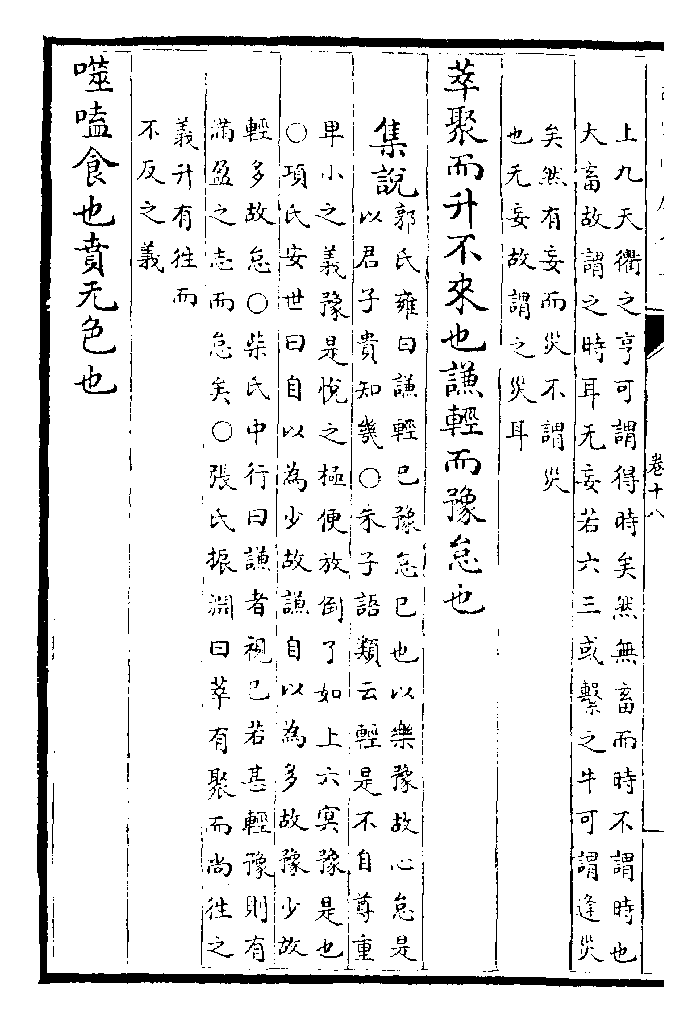 卷十八
上九天衢之亨可謂得時矣然無畜而時不謂時也
大畜故謂之時耳无妄若六三或繫之牛可謂逢災
矣然有妄而災不謂災
也无妄故謂之災耳
萃聚而升不來也謙輕而豫怠也
集說
郭氏雍曰謙輕已豫怠已也以樂豫故心怠是
以君子貴知幾○朱子語類云輕是不自尊重
卑小之義豫是悅之極便放倒了如上六冥豫是也
○項氏安世曰自以為少故謙自以為多故豫少故
輕多故怠○柴氏中行曰謙者視已若甚輕豫則有
滿盈之志而怠矣○張氏振淵曰萃有聚而尚往之
義升有往而
不反之義
噬嗑食也賁无色也